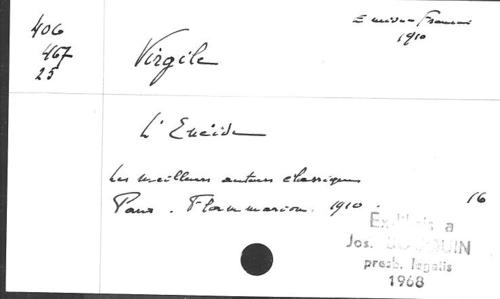 406
467
25
Enéide Français
1910
Virgile
L'Enéide
Les meilleurs auteurs classiques
Paris. Flammarion. 1910.
16
Ex-libris a
Jos. BOUQUIN
presb. legatis
1968